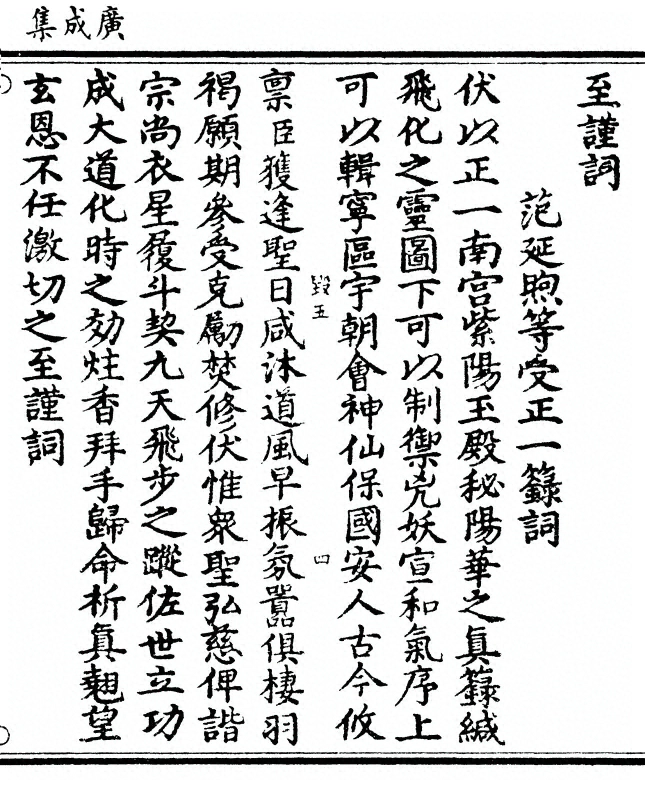 廣成集
至謹詞
范延煦等受正一籙詞
伏以正一南宫紫陽玉殿秘陽華之眞籙緘
飛化之靈圖下可以制禦兇妖宣和氣序上
可以輯寧區宇朝會神仙保國安人古今攸
毀五
四
禀臣獲逢聖日咸沐道風早振氛嚣俱棲羽
褐願期參受克勵焚修伏惟衆聖弘慈俾諧
宗尚衣星履斗契九天飛步之蹤佐世立功
成大道化時之効炷香拜手歸命祈眞翹望
玄恩不任激切之至謹詞